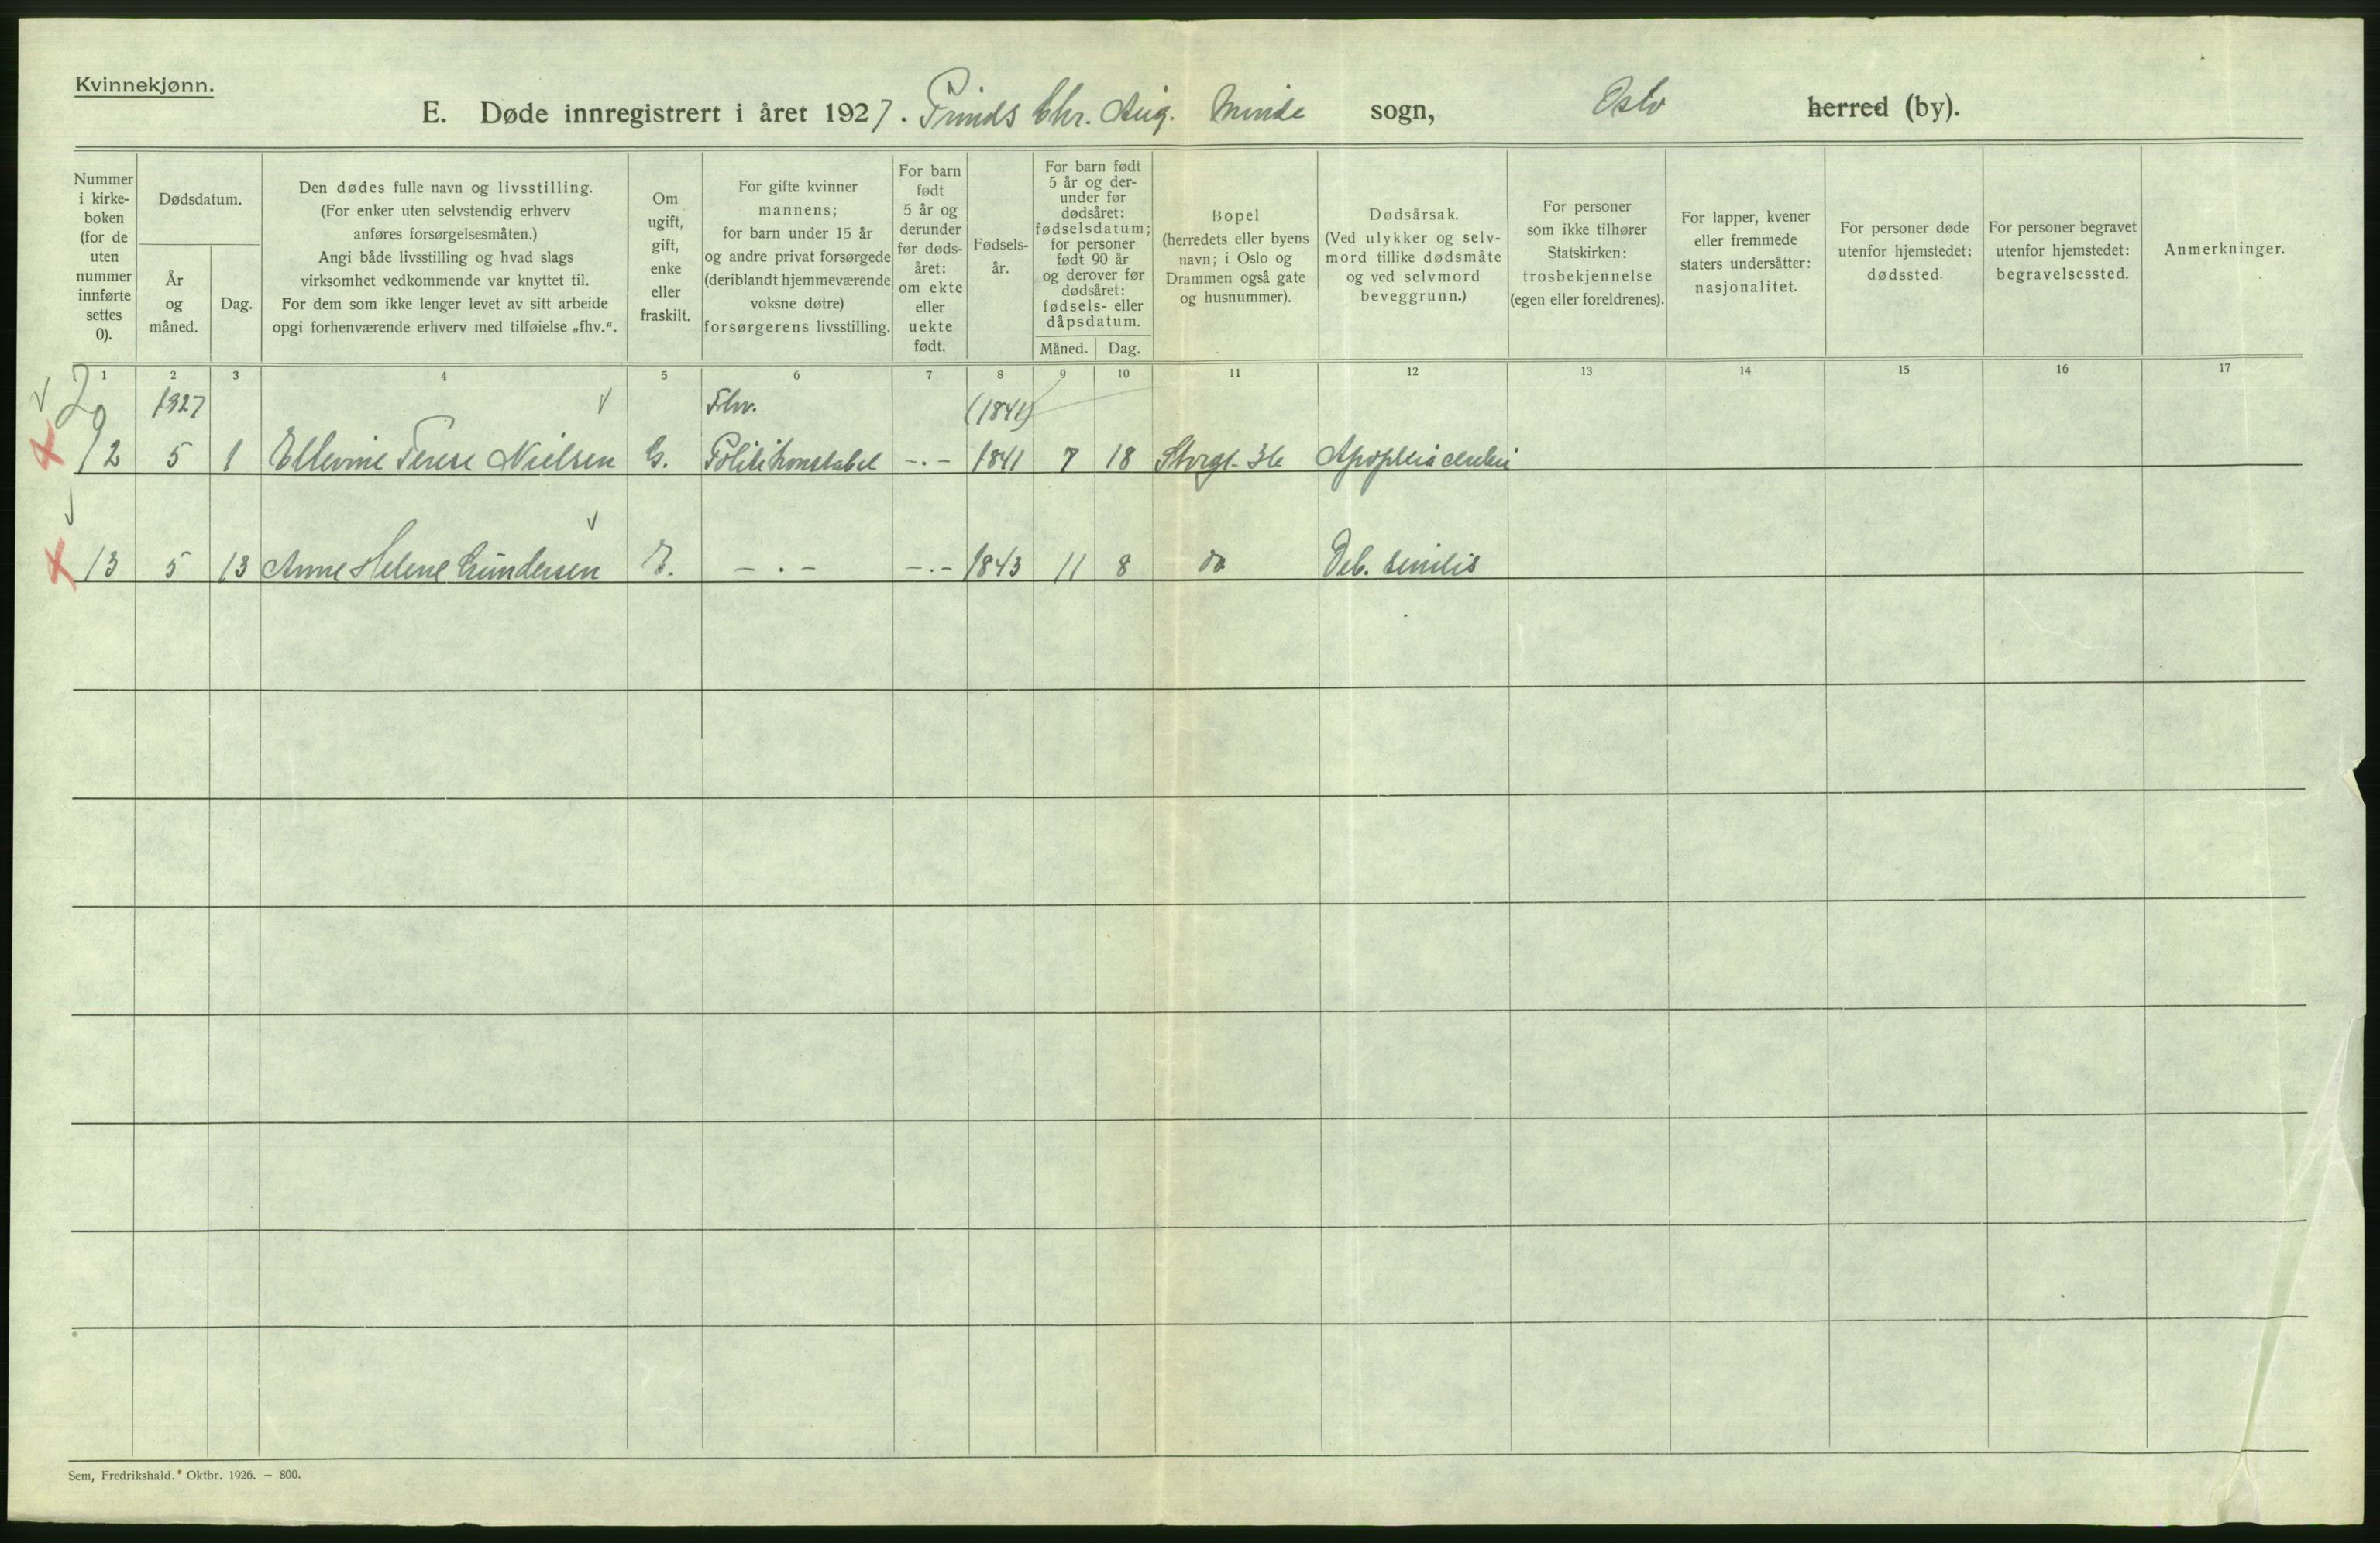 Kvinnekjønn.
E. Døde innregistrert i året 1927. Prinds Chr. Aug. Minde sogn, Oslo herred (by).
Nummer i kirke-boken (for de uten nummer innførte settes 0).
Dødsdatum.
År og måned.
Dag.
Den dødes fulle navn og livsstilling.
(For enker uten selvstendig erhverv
anføres forsørgelsesmåten.)
Angi både livsstilling og hvad slags
virksomhet vedkommende var knyttet til.
For dem som ikke lenger levet av sitt arbeide
opgi forhenværende erhverv med tilføielse „fhv.“.
Om ugift, gift, enke eller fraskilt.
For gifte kvinner
mannens;
for barn under 15 år
og andre privat forsørgede
(deriblandt hjemmeværende
voksne døtre)
forsørgerens livsstilling.
For barn født 5 år og derunder før døds-året: om ekte eller uekte født.
Fødsels-år.
For barn født
5 år og der-
under før
dødsåret:
fødselsdatum;
for personer
født 90 år
og derover før
dødsåret:
fødsels- eller
dåpsdatum.
Måned. Dag.
Bopel
(herredets eller byens
navn; i Oslo og
Drammen også gate
og husnummer).
Dødsårsak.
(Ved ulykker og selv-
mord tillike dødsmåte
og ved selvmord
beveggrunn.)
For personer
som ikke tilhører
Statskirken:
trosbekjennelse
(egen eller foreldrenes).
For lapper, kvener
eller fremmede
staters undersåtter:
nasjonalitet.
For personer døde
utenfor hjemstedet:
dødssted.
For personer begravet
utenfor hjemstedet:
begravelsessted.
Anmerkninger.
1 2 3 4 5 6 7 8 9 10 11 12 13 14 15 16 17
1927 Fhv. (1841)
12 5 1 Ellevine Terese Nielsen G. Politikonstabel -.- 1841 7 18 Storgt. 36 Apoplexia cerebri
13 5 13 Anne Helene Gundersen E. - . - -.- 1843 11 8 do Deb. senilis
Sem, Fredrikshald. Oktbr. 1926. – 800.